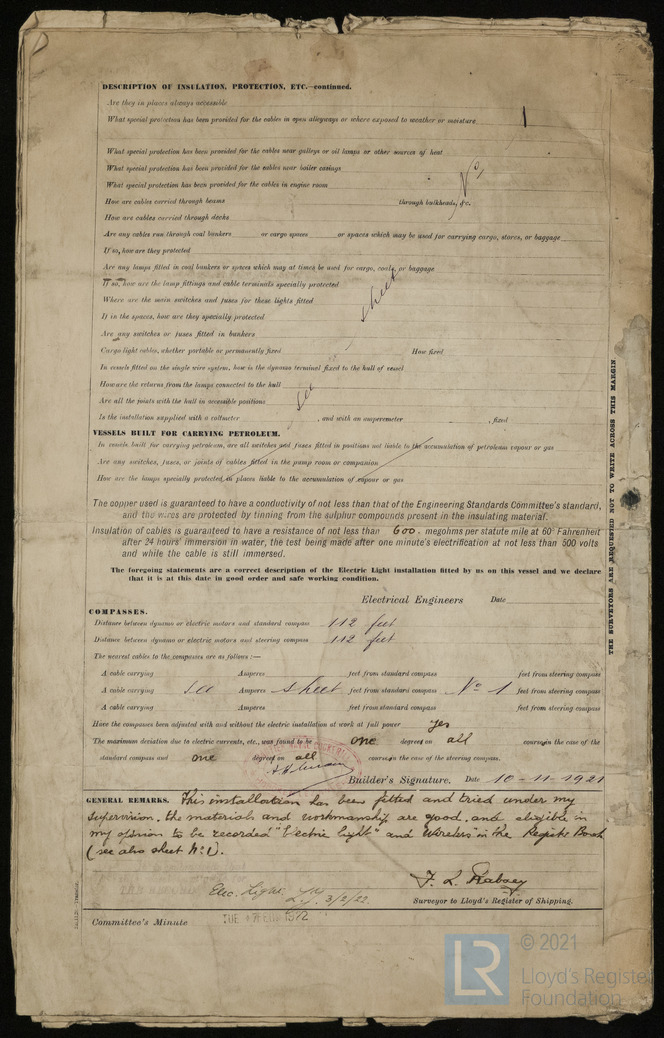 DESCRIPTION OF INSULATION, PROTECTION, ETC.—continued.
Are they in places always accessible
What special protection has been provided for the cables in open alleyways or where exposed to weather or moisture
What special protection has been provided for the cables near galleys or oil lamps or other sources of heat
What special protection has been provided for the cables near boiler casings
What special protection has been provided for the cables in engine room
How are cables carried through beams through bulkheads, &c.
How are cables carried through decks
Are any cables run through coal bunkers or cargo spaces or spaces which may be used for carrying cargo, stores, or baggage
If so, how are they protected
Are any lamps fitted in coal bunkers or spaces which may at times be used for cargo, coals, or baggage
If so, how are the lamp fittings and cable terminals specially protected
Where are the main switches and fuses for these lights fitted
If in the spaces, how are they specially protected
Are any switches or fuses fitted in bunkers
Cargo light cables, whether portable or permanently fixed How fixed
In vessels fitted on the single wire system, how is the dynamo terminal fixed to the hull of vessel
How are the returns from the lamps connected to the hull
Are all the joints with the hull in accessible positions
Is the installation supplied with a voltmeter , and with an amperemeter , fixed
See sheet No 1
VESSELS BUILT FOR CARRYING PETROLEUM.
In vessels built for carrying petroleum, are all switches and fuses fitted in positions not liable to the accumulation of petroleum vapour or gas
Are any switches, fuses, or joints of cables fitted in the pump room or companion
How are the lamps specially protected in places liable to the accumulation of vapour or gas
The copper used is guaranteed to have a conductivity of not less than that of the Engineering Standards Committee's standard,
and the wires are protected by tinning from the sulphur compounds present in the insulating material.
Insulation of cables is guaranteed to have a resistance of not less than 600 megohms per statute mile at 60° Fahrenheit
after 24 hours' immersion in water, the test being made after one minute's electrification at not less than 500 volts
and while the cable is still immersed.
The foregoing statements are a correct description of the Electric Light installation fitted by us on this vessel and we declare
that it is at this date in good order and safe working condition.
Electrical Engineers Date
COMPASSES.
Distance between dynamo or electric motors and standard compass 112 feet
Distance between dynamo or electric motors and steering compass 112 feet
The nearest cables to the compasses are as follows:—
A cable carrying Amperes feet from standard compass feet from steering compass
A cable carrying See Amperes sheet feet from standard compass No 1 feet from steering compass
A cable carrying Amperes feet from standard compass feet from steering compass
Have the compasses been adjusted with and without the electric installation at work at full power yes
The maximum deviation due to electric currents, etc., was found to be one degrees on all course in the case of the
standard compass and one degrees on all course in the case of the steering compass.
Builder's Signature. Date 10-11-1921
GENERAL REMARKS. This installation has been fitted and tried under my
supervision, the materials and workmanship are good, and eligible in
my opinion to be recorded "Electric light" and Wireless in the Register Book
(see also sheet No 1).
Elec. Light. 3/2/22
Surveyor to Lloyd's Register of Shipping.
Committee's Minute TUE 7 FEB 1922
THE SURVEYORS ARE REQUESTED NOT TO WRITE ACROSS THIS MARGIN.
LR
© 2021
Lloyd's Register
Foundation